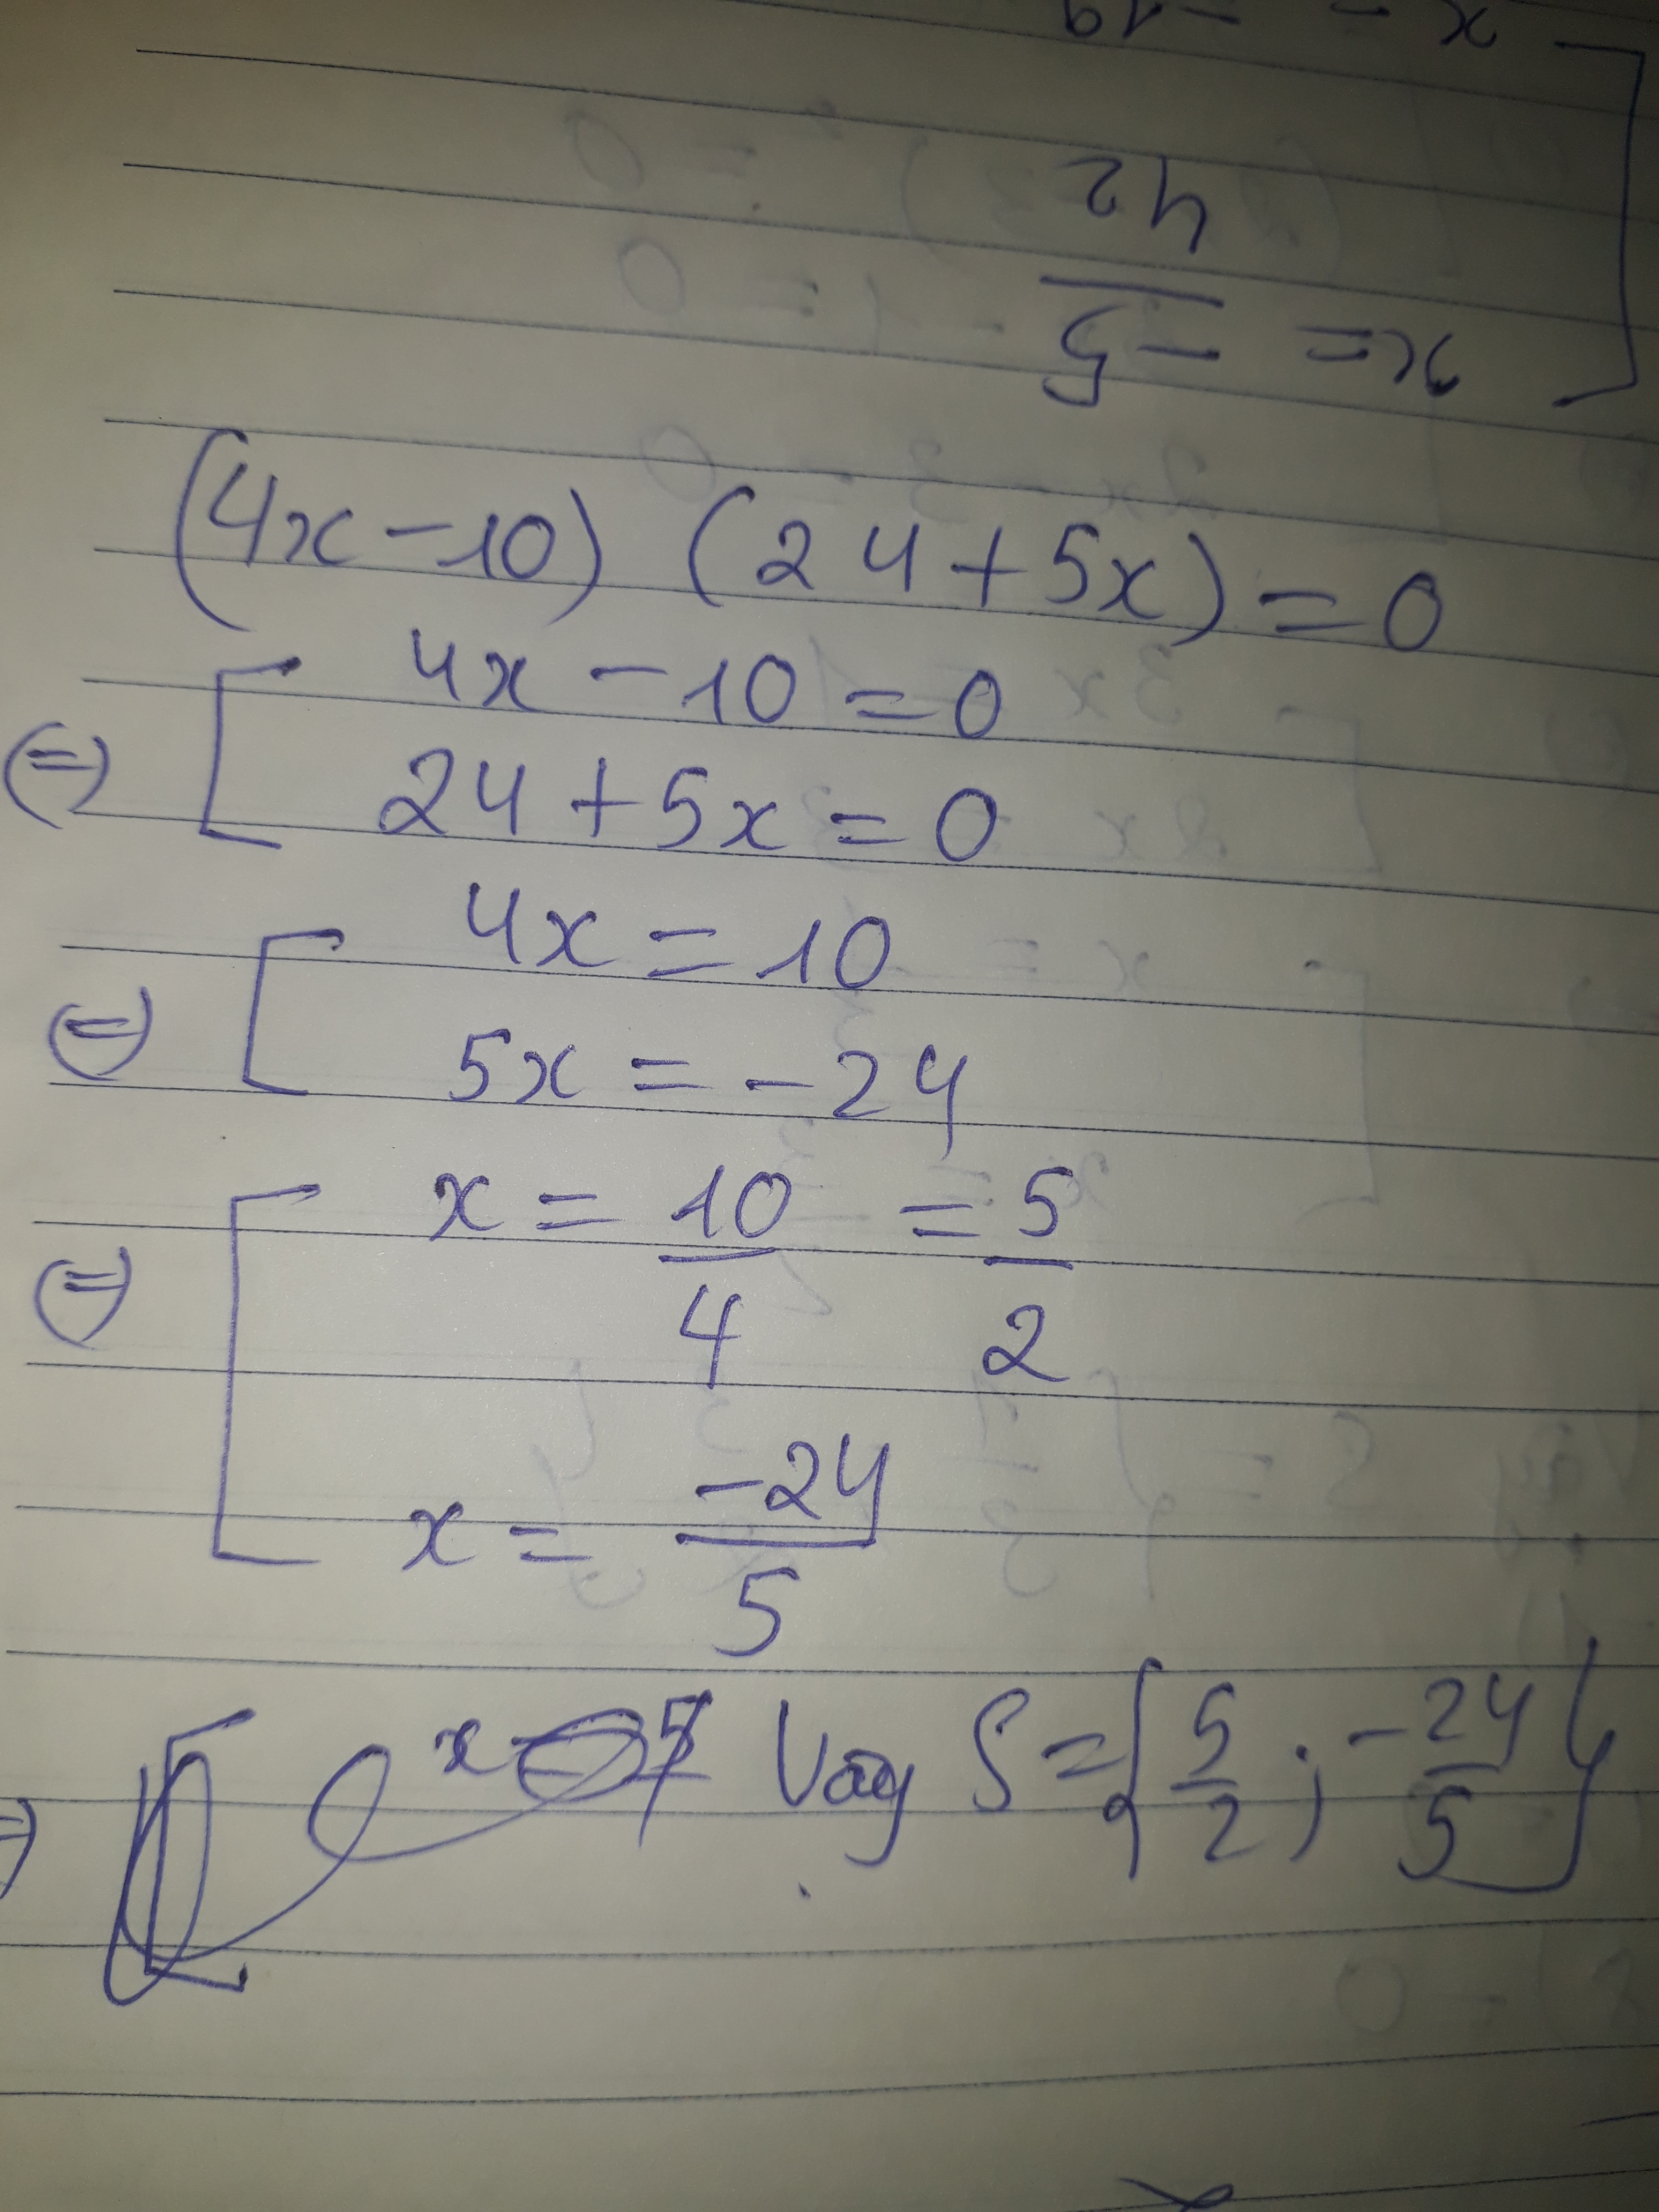 x = -19
x = -5/42
(4x - 10) (24 + 5x) = 0
(=) [ 4x - 10 = 0
24 + 5x = 0
(=) [ 4x = 10
5x = -24
(=) [ x = 10/4 = 5/2
x = -24/5
Vay S = { 5/2 ; -24/5 }